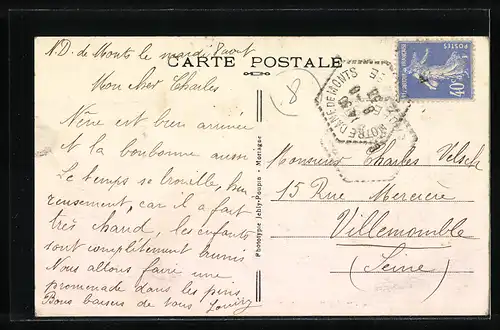 N.D. de Monts le mardi 8 aout
CARTE POSTALE
Mon cher Charles
Nêne est bien arrivée
et la bonbonne aussi
Le temps se brouille, heu
reusement, car il a fait
très chaud, les enfants
sont complètement brunis
Nous allons faire une
promenade dans les pins
Bons baisers de tous
(8)
Phototypie Jehly-Poupin - Mortagne
NOTRE DAME DE MONTS
POSTES
40c
Monsieur Charles
15 Rue Mercière
Villemomble
(Seine)